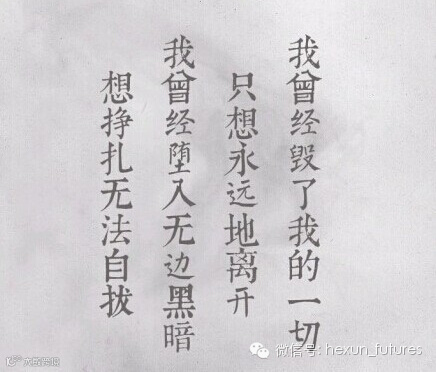 我曾经毁了我的一切
只想永远地离开
我曾经堕入无边黑暗
想挣扎无法自拔
微信号: hexun_futures